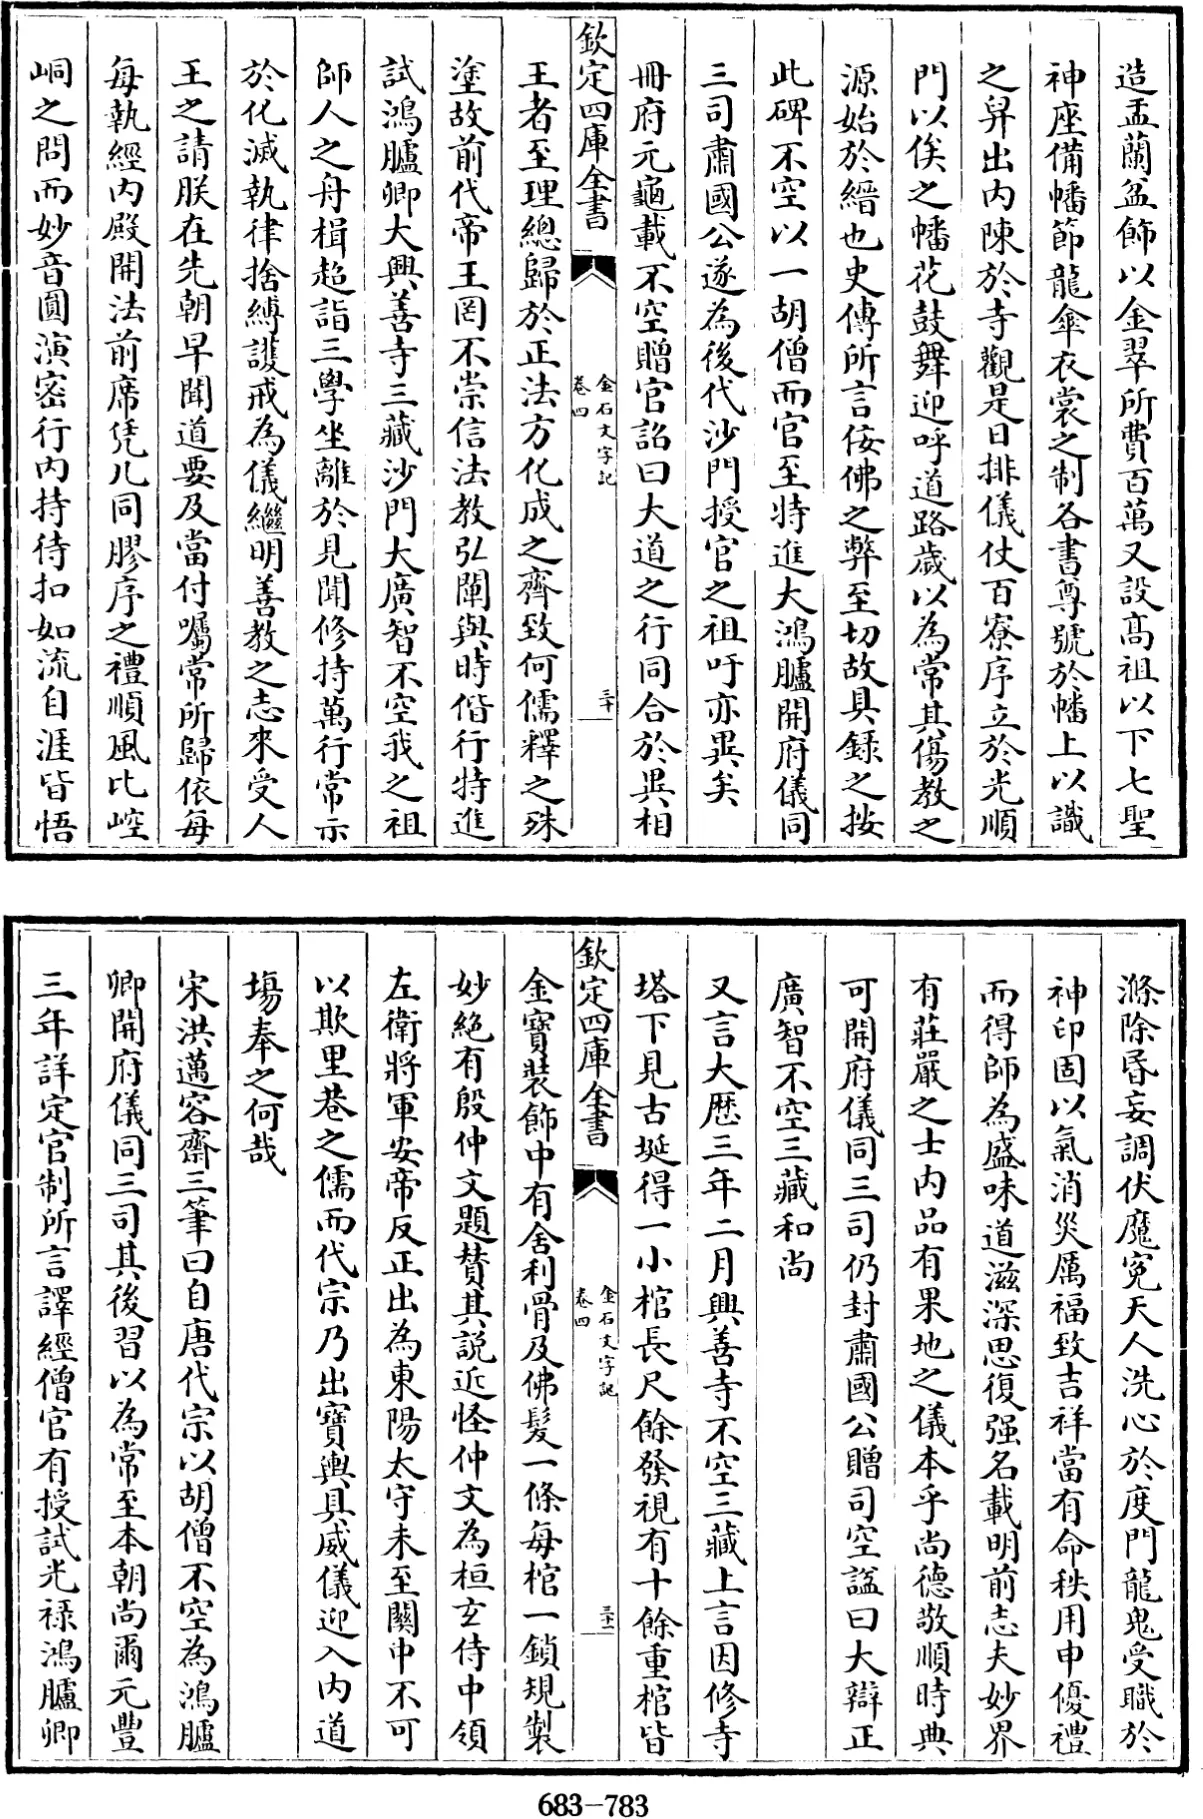 造盂蘭盆飾以金翠所費百萬又設高祖以下七聖
神座備幡節龍傘衣裳之制各書尊號於幡上以識
之舁出内陳於寺觀是日排儀仗百寮序立於光順
門以俟之幡花鼓舞迎呼道路歲以為常其傷教之
源始於縉也史傳所言佞佛之弊至切故具錄之按
此碑不空以一胡僧而官至特進大鴻臚開府儀同
三司肅國公遂為後代沙門授官之祖吁亦異矣
冊府元龜載不空贈官詔曰大道之行同合於異相
欽定四庫全書
金石文字記
卷四
三十
王者至理總歸於正法方化成之齊致何儒釋之殊
塗故前代帝王罔不崇信法教弘闡與時偕行特進
試鴻臚卿大興善寺三藏沙門大廣智不空我之祖
師人之舟楫超詣三學坐離於見聞修持萬行常示
於化滅執律捨縛護戒為儀繼明善教之志來受人
王之請朕在先朝早聞道要及當付囑常所歸依每
每執經内殿開法前席凭几同膠序之禮順風比崆
峒之問而妙音圓演密行内持待扣如流自涯皆悟
滌除昏妄調伏魔寃天人洗心於度門龍鬼受職於
神印固以氣消災厲福致吉祥當有命秩用申優禮
而得師為盛味道滋深思復强名載明前志夫妙界
有莊嚴之士内品有果地之儀本乎尚德敬順時典
可開府儀同三司仍封肅國公贈司空諡曰大辯正
廣智不空三藏和尚
又言大歷三年二月興善寺不空三藏上言因修寺
塔下見古埏得一小棺長尺餘發視有十餘重棺皆
欽定四庫全書
金石文字記
卷四
三十一
金寶裝飾中有舍利骨及佛髮一條每棺一鎖規製
妙絶有殷仲文題贊其説近怪仲文為桓𤣥侍中領
左衛將軍安帝反正出為東陽太守未至關中不可
以欺里巷之儒而代宗乃出寶輿具威儀迎入内道
場奉之何哉
宋洪邁容齋三筆曰自唐代宗以胡僧不空為鴻臚
卿開府儀同三司其後習以為常至本朝尚爾元豐
三年詳定官制所言譯經僧官有授試光禄鴻臚卿
683-783